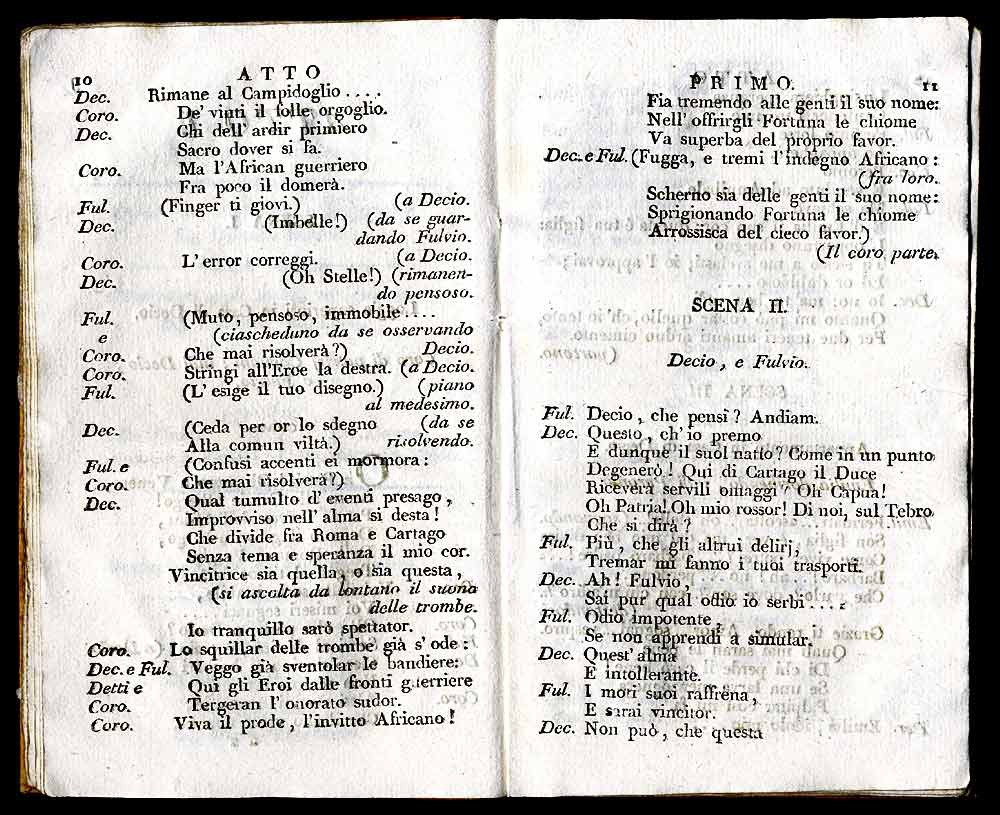 10
ATTO
Dec. Rimane al Campidoglio ....
Coro. De' vinti il folle orgoglio.
Dec. Chi dell' ardir primiero
Sacro dover si fa.
Coro. Ma l'African guerriero
Fra poco il domerà.
Ful. (Finger ti giovi.) (a Decio.
Dec. (Imbelle!) (da se guar-
dando Fulvio.
Coro. L' error correggi. (a Decio.
Dec. (Oh Stelle!) (rimanen-
do pensoso.
Ful. (Muto, pensoso, immobile ....
e (ciascheduno da se osservando
Coro. Che mai risolverà?) Decio.
Coro. Stringi all'Eroe la destra. (a Decio.
Ful. (L' esige il tuo disegno.) (piano
al medesimo.
Dec. (Ceda per or lo sdegno (da se
Alla comun viltà.) risolvendo.
Ful. e (Confusi accenti ei mormora:
Coro. Che mai risolverà?)
Dec. Qual tumulto d' eventi presago,
Improvviso nell' alma si desta!
Che divide fra Roma e Cartago
Senza tema e speranza il mio cor.
Vincitrice sia quella, o sia questa,
(si ascolta da lontano il suono
delle trombe.
Io tranquillo sarò spettator.
Coro. Lo squillar delle trombe già s' ode:
Dec. e Ful. Veggo già sventolar le bandiere:
Detti e Qui gli Eroi dalle fronti guerriere
Coro. Tergeran l' onorato sudor.
Coro. Viva il prode, l'invitto Africano!
PRIMO.
11
Fia tremendo alle genti il suo nome:
Nell' offrirgli Fortuna le chiome
Va superba del proprio favor.
Dec. e Ful. (Fugga, e tremi l'indegno Africano:
(fra loro.
Scherno sia delle genti il suo nome:
Sprigionando Fortuna le chiome
Arrossisca del cieco favor.)
(Il coro parte.
SCENA II.
Decio, e Fulvio.
Ful. Decio, che pensi? Andiam.
Dec. Questo, ch' io premo
E dunque il suol natio? Come in un punto
Degenerò! Qui di Cartago il Duce
Riceverà servili omaggi? Oh Capua!
Oh Patria! Oh mio rossor! Di noi, sul Tebro
Che si dirà?
Ful. Più, che gli altrui delirj,
Tremar mi fanno i tuoi trasporti.
Dec. Ah! Fulvio,
Sai pur qual odio io serbi ....
Ful. Odio impotente,
Se non apprendi a simular.
Dec. Quest' alma
E intollerante.
Ful. I moti suoi raffrena,
E sarai vincitor.
Dec. Non può, che questa